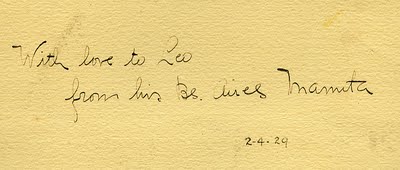 With love to Leo
from his Bs. Aires Mamita
2-4-29